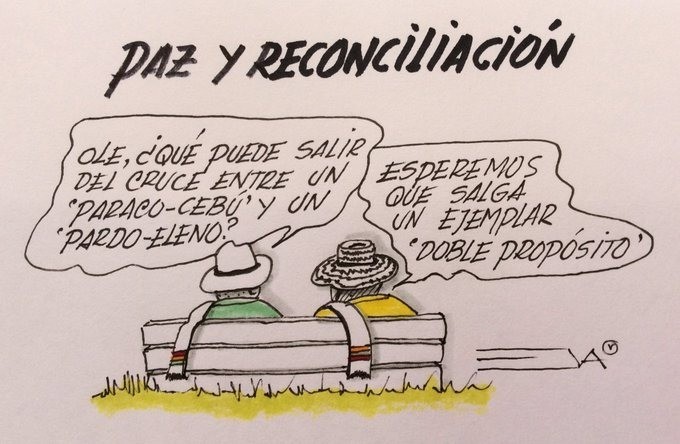 PAZ Y RECONCILIACIÓN
OLE, ¿QUÉ PUEDE SALIR
DEL CRUCE ENTRE UN
'PARACO-CEBÚ' Y UN
'PARDO-ELENO?
ESPEREMOS
QUE SALGA
UN EJEMPLAR
'DOBLE PROPÓSITO'